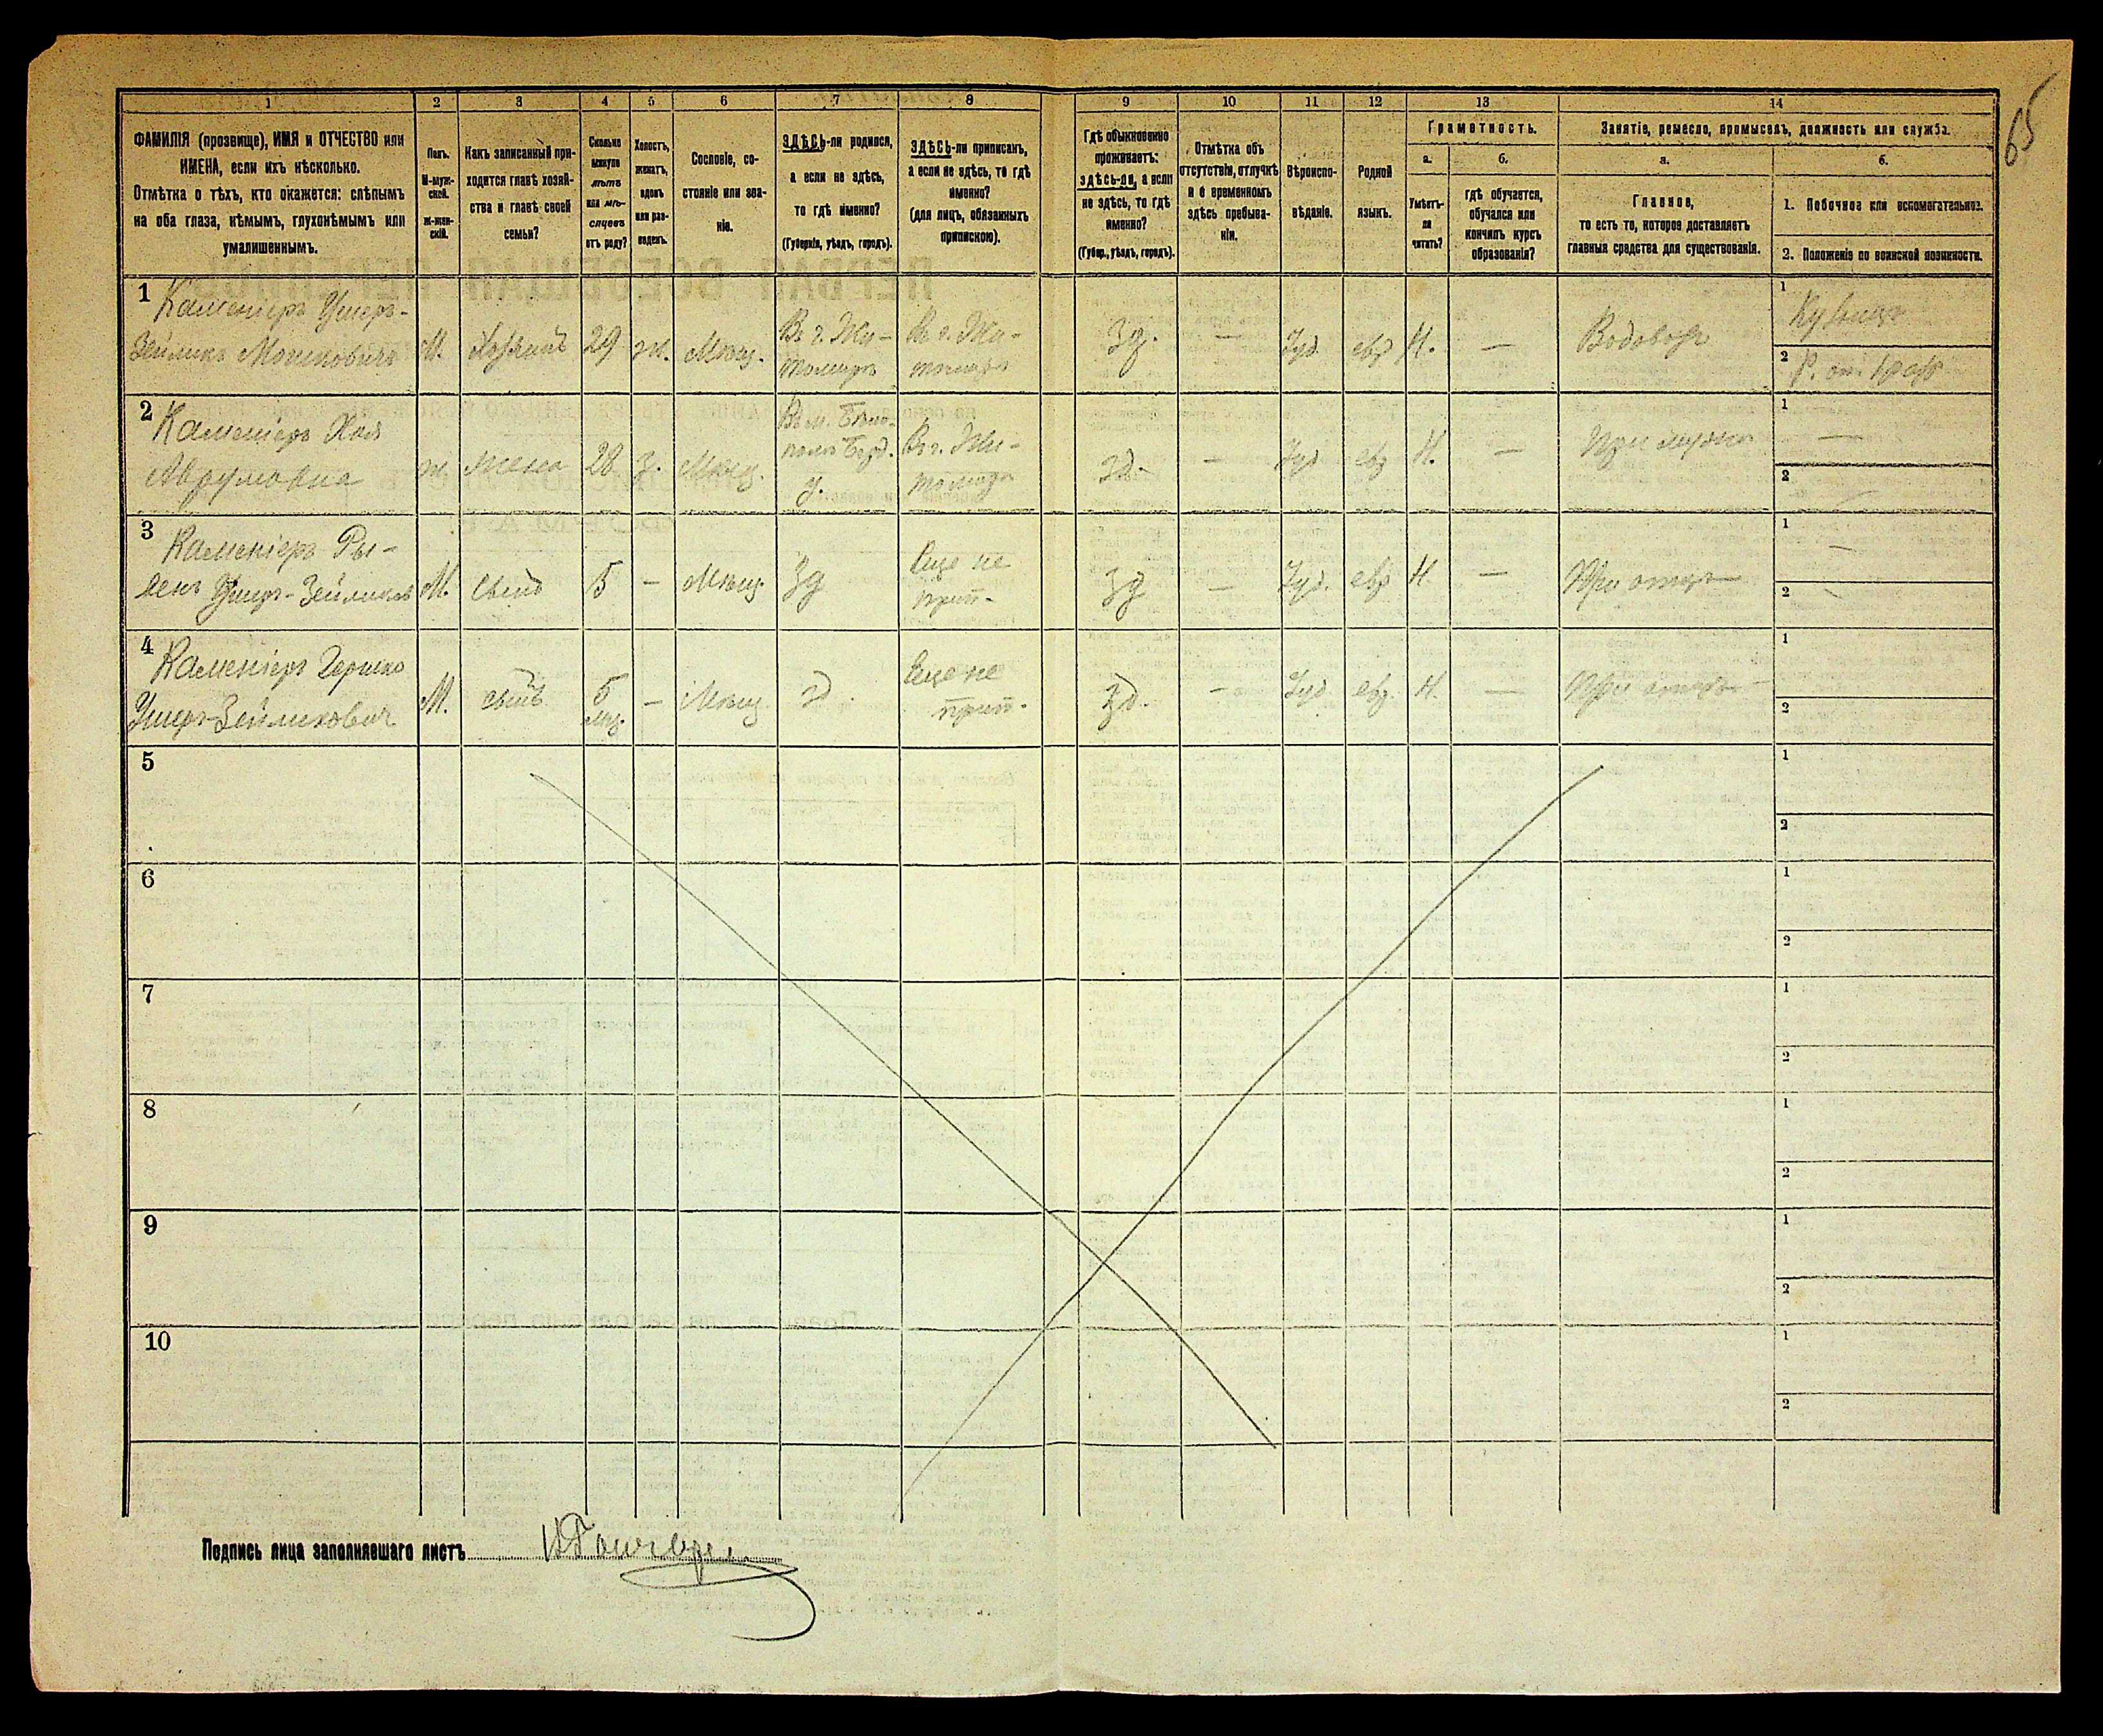 65
1 2 3 4 5 6 7 8 9 10 11 12 13 14
ФАМИЛІЯ (прозвище), ИМЯ и ОТЧЕСТВО или
ИМЕНА, если ихъ нѣсколько.
Отмѣтка о тѣхъ, кто окажется: слѣпымъ
на оба глаза, нѣмымъ, глухонѣмымъ или
умалишеннымъ.
Полъ.
М-муж-
ской.
Ж-жен-
скій.
Какъ записанный при-
ходится главѣ хозяй-
ства и главѣ своей
семьи?
Сколько
минуло
лѣтъ
или мѣ-
сяцевъ
отъ роду?
Холостъ,
женатъ,
вдовъ
или раз-
веденъ.
Сословіе, со-
стояніе или зва-
ніе.
ЗДѢСЬ-ли родился,
а если не здѣсь,
то гдѣ именно?
(Губернія, уѣздъ, городъ).
ЗДѢСЬ-ли приписанъ,
а если не здѣсь, то гдѣ
именно?
(для лицъ, обязанныхъ
припискою).
Гдѣ обыкновенно
проживаетъ:
здѣсь-ли, а если
не здѣсь, то гдѣ
именно?
(Губер., уѣздъ, городъ).
Отмѣтка объ
отсутствіи, отлучкѣ
и о временномъ
здѣсь пребыва-
ніи.
Вѣроиспо-
вѣданіе.
Родной
языкъ.
Грамотность.
а.
Умѣетъ-
ли
читать?
б.
гдѣ обучается,
обучался или
кончилъ курсъ
образованія?
Занятіе, ремесло, промыселъ, должность или служба.
а.
Главное,
то есть то, которое доставляетъ
главныя средства для существованія.
б.
1. Побочное или вспомогательное.
2. Положеніе по воинской повинности.
1 Каменіеръ Ушеръ-
Зейликъ Мошковичъ
М. Хозяинъ 29 ж. Мѣщ.
Въ г. Жи-
томирѣ
Въ г. Жи-
томирѣ
Зд. — Іуд. евр Н. — Водовозъ
1 Кузнецъ
2
2 Каменіеръ Хая
Аврумовна
ж. жена 28 з. Мѣщ.
Въ м. Бѣло-
полѣ Берд.
у.
Въ г. Жи-
томирѣ
зд. — Іуд евр Н. — При мужѣ
1 —
2 —
3 Каменіеръ Ры-
Ушеръ-Зейликов
М. сынъ 5 — Мѣщ. Зд
Еще не
прип.
Зд — Іуд. евр Н. — При отцѣ
1 —
2 —
4 Каменіеръ Гершко
Ушеръ-Зейликович
М. сынъ
5
мѣс.
— Мѣщ. зд.
Еще не
прип.
Зд. — Іуд. евр. Н. — При отцѣ —
1
2
5
1
2
6
1
2
7
1
2
8
1
2
9
1
2
10
1
2
Подпись лица заполнявшаго листъ